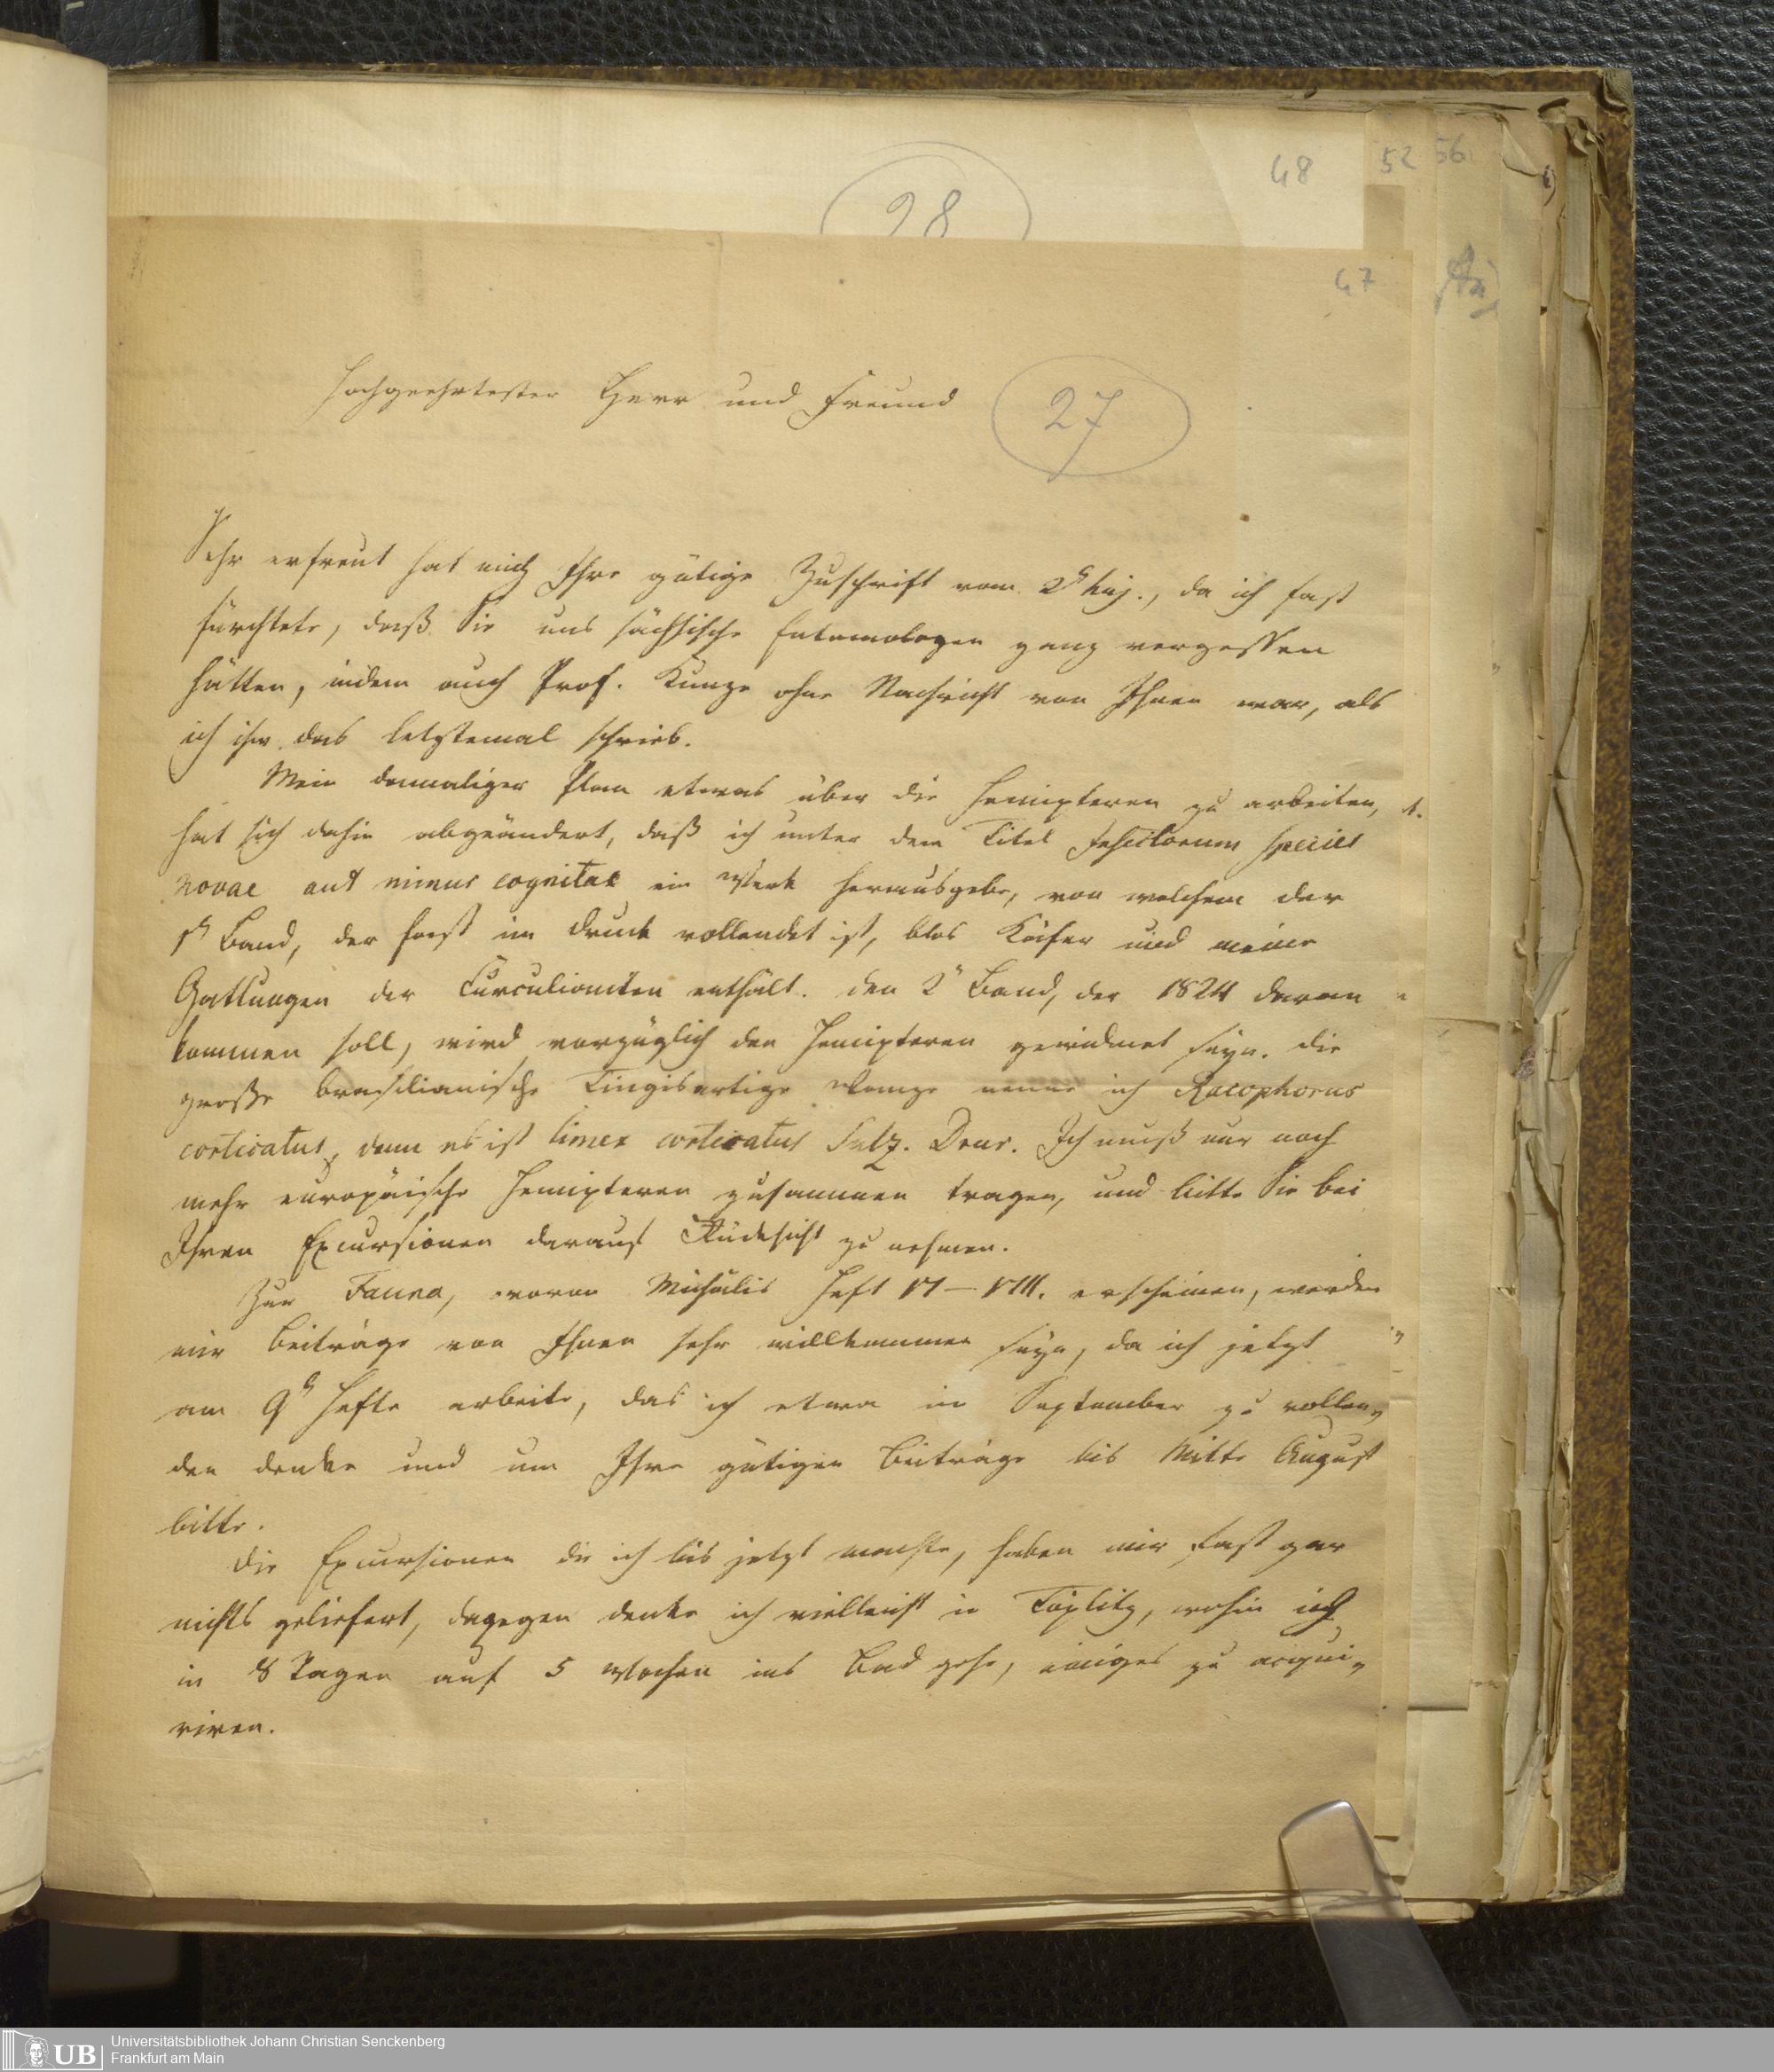 48
52
56
28
47
Hochgeehrtester Herr und Freund
27
Sehr erfreut hat mich Ihre gütige Zuschrift vom 2ⁿ huj., da ich fast
fürchtete, daß Sie uns sächsische Entomologen ganz vergessen
hätten, indem auch Prof. Kunze ohne Nachricht von Ihnen war, als
ich ihn das letztemal schrieb.
Mein damaliger Plan etwas über die Hemipteren zu arbeiten,
hat sich dahin abgeändert, daß ich unter dem Titel Insectorum species
novae aut minus cognitae ein Werk herausgebe, von welchem der
1ⁿ Band, der fast im Druck vollendet ist, blos Käfer und meine
Gattungen der Curculioniten enthält. Den 2ⁿ Band, der 1824 daran
kommen soll, wird vorzüglich den Hemipteren gewidmet seyn. Die
große brasilianische Tingisartige Wanze nenne ich Racophorus
corticatus, denn es ist Cimex corticatus Sulz. Drur. Ich muß nur noch
mehr europäische Hemipteren zusammen tragen, und bitte Sie bei
Ihren Excursionen darauf Rücksicht zu nehmen.
Zur Fauna, wovon Michälis Heft VI–VIII. erscheinen, werden
mir Beiträge von Ihnen sehr willkommen seyn, da ich jetzt
am 9ⁿ Hefte arbeite, das ich etwa im September zu vollen-
den denke und um Ihre gütigen Beiträge bis Mitte August
bitte.
Die Excursionen die ich bis jetzt machte, haben mir fast gar
nichts geliefert, dagegen denke ich vielleicht in Töplitz, wohin ich
in 8 Tagen auf 5 Wochen ins Bad gehe, einiges zu acqui-
riren.
UB
Universitätsbibliothek Johann Christian Senckenberg
Frankfurt am Main